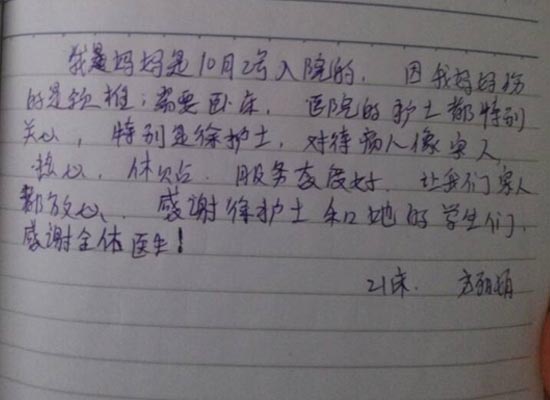 我妈妈是10月2号入院的，因我妈妈伤
的是颈椎；需要卧床，医院的护士都特别
关心，特别是徐护士，对待病人像家人，
热心、体贴，服务态度好，让我们家人
都放心、感谢徐护士和她的学生们，
感谢全体医生！
21床．